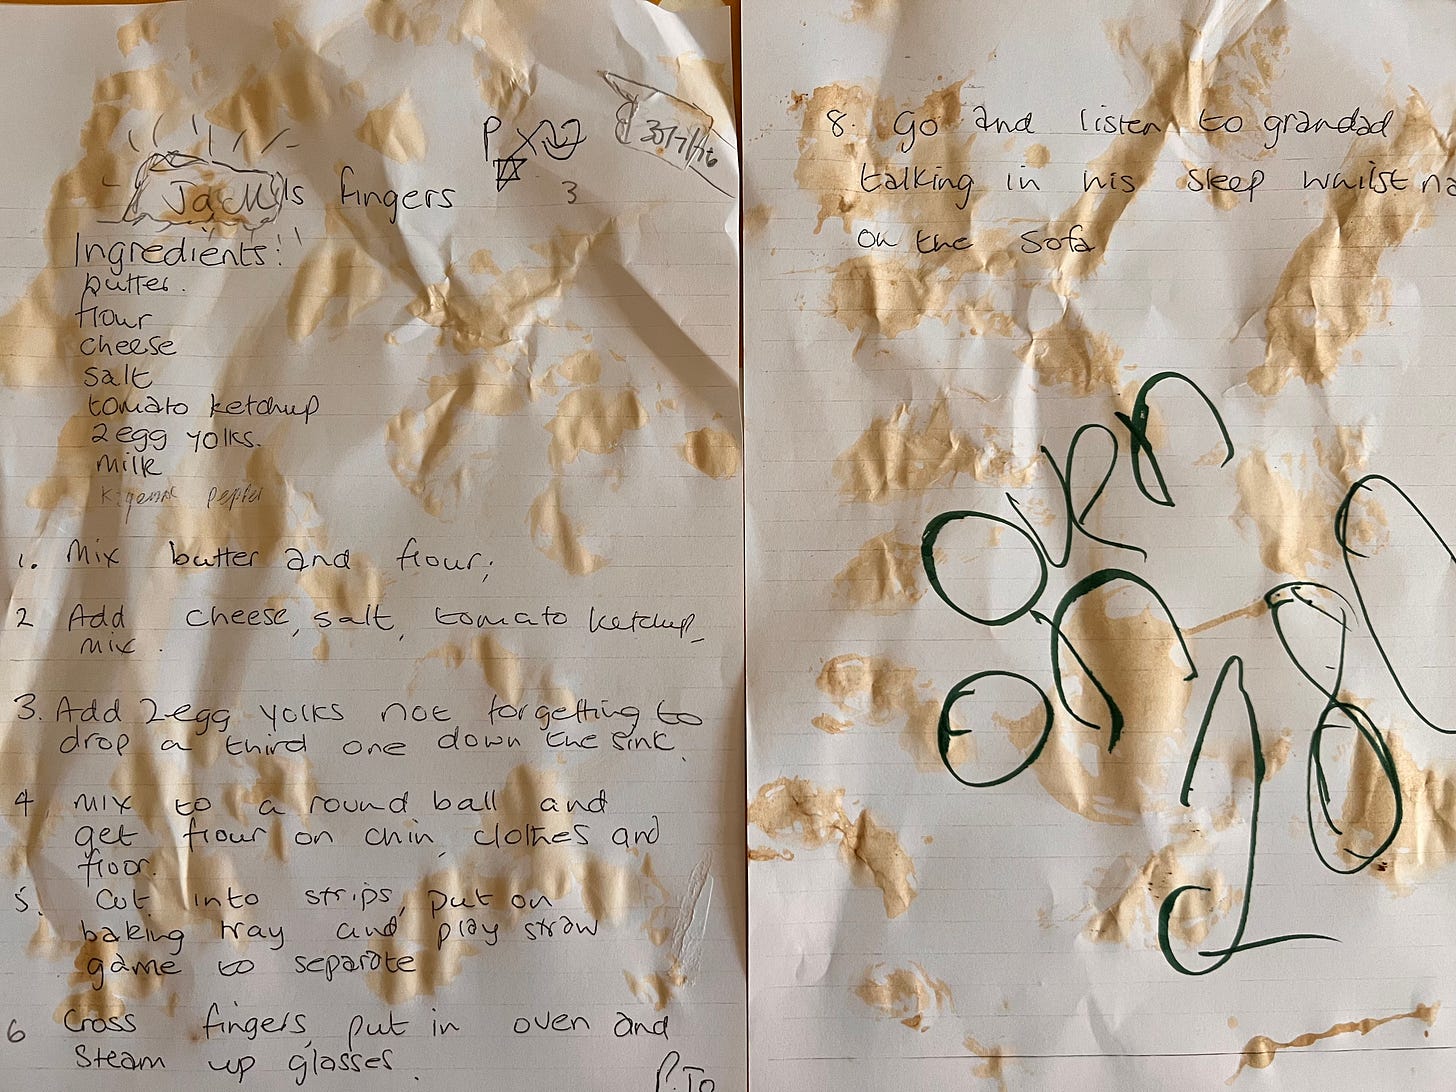 30/7/16
3
Jack's fingers
Ingredients!
butter.
flour
cheese
salt
tomato ketchup
2 egg yolks.
milk
pepper
1. Mix butter and flour;
2 Add cheese, salt, tomato ketchup,
mix.
3. Add 2 egg yolks not forgetting to
drop a third one down the sink.
4. mix to a round ball and
get flour on chin, clothes and
floor.
5. Cut into strips, put on
baking tray and play straw
game to separate
6 Cross fingers, put in oven and
steam up glasses.
P.TO
8. Go and listen to grandad
talking in his sleep whilst
on the sofa
oven
on
180